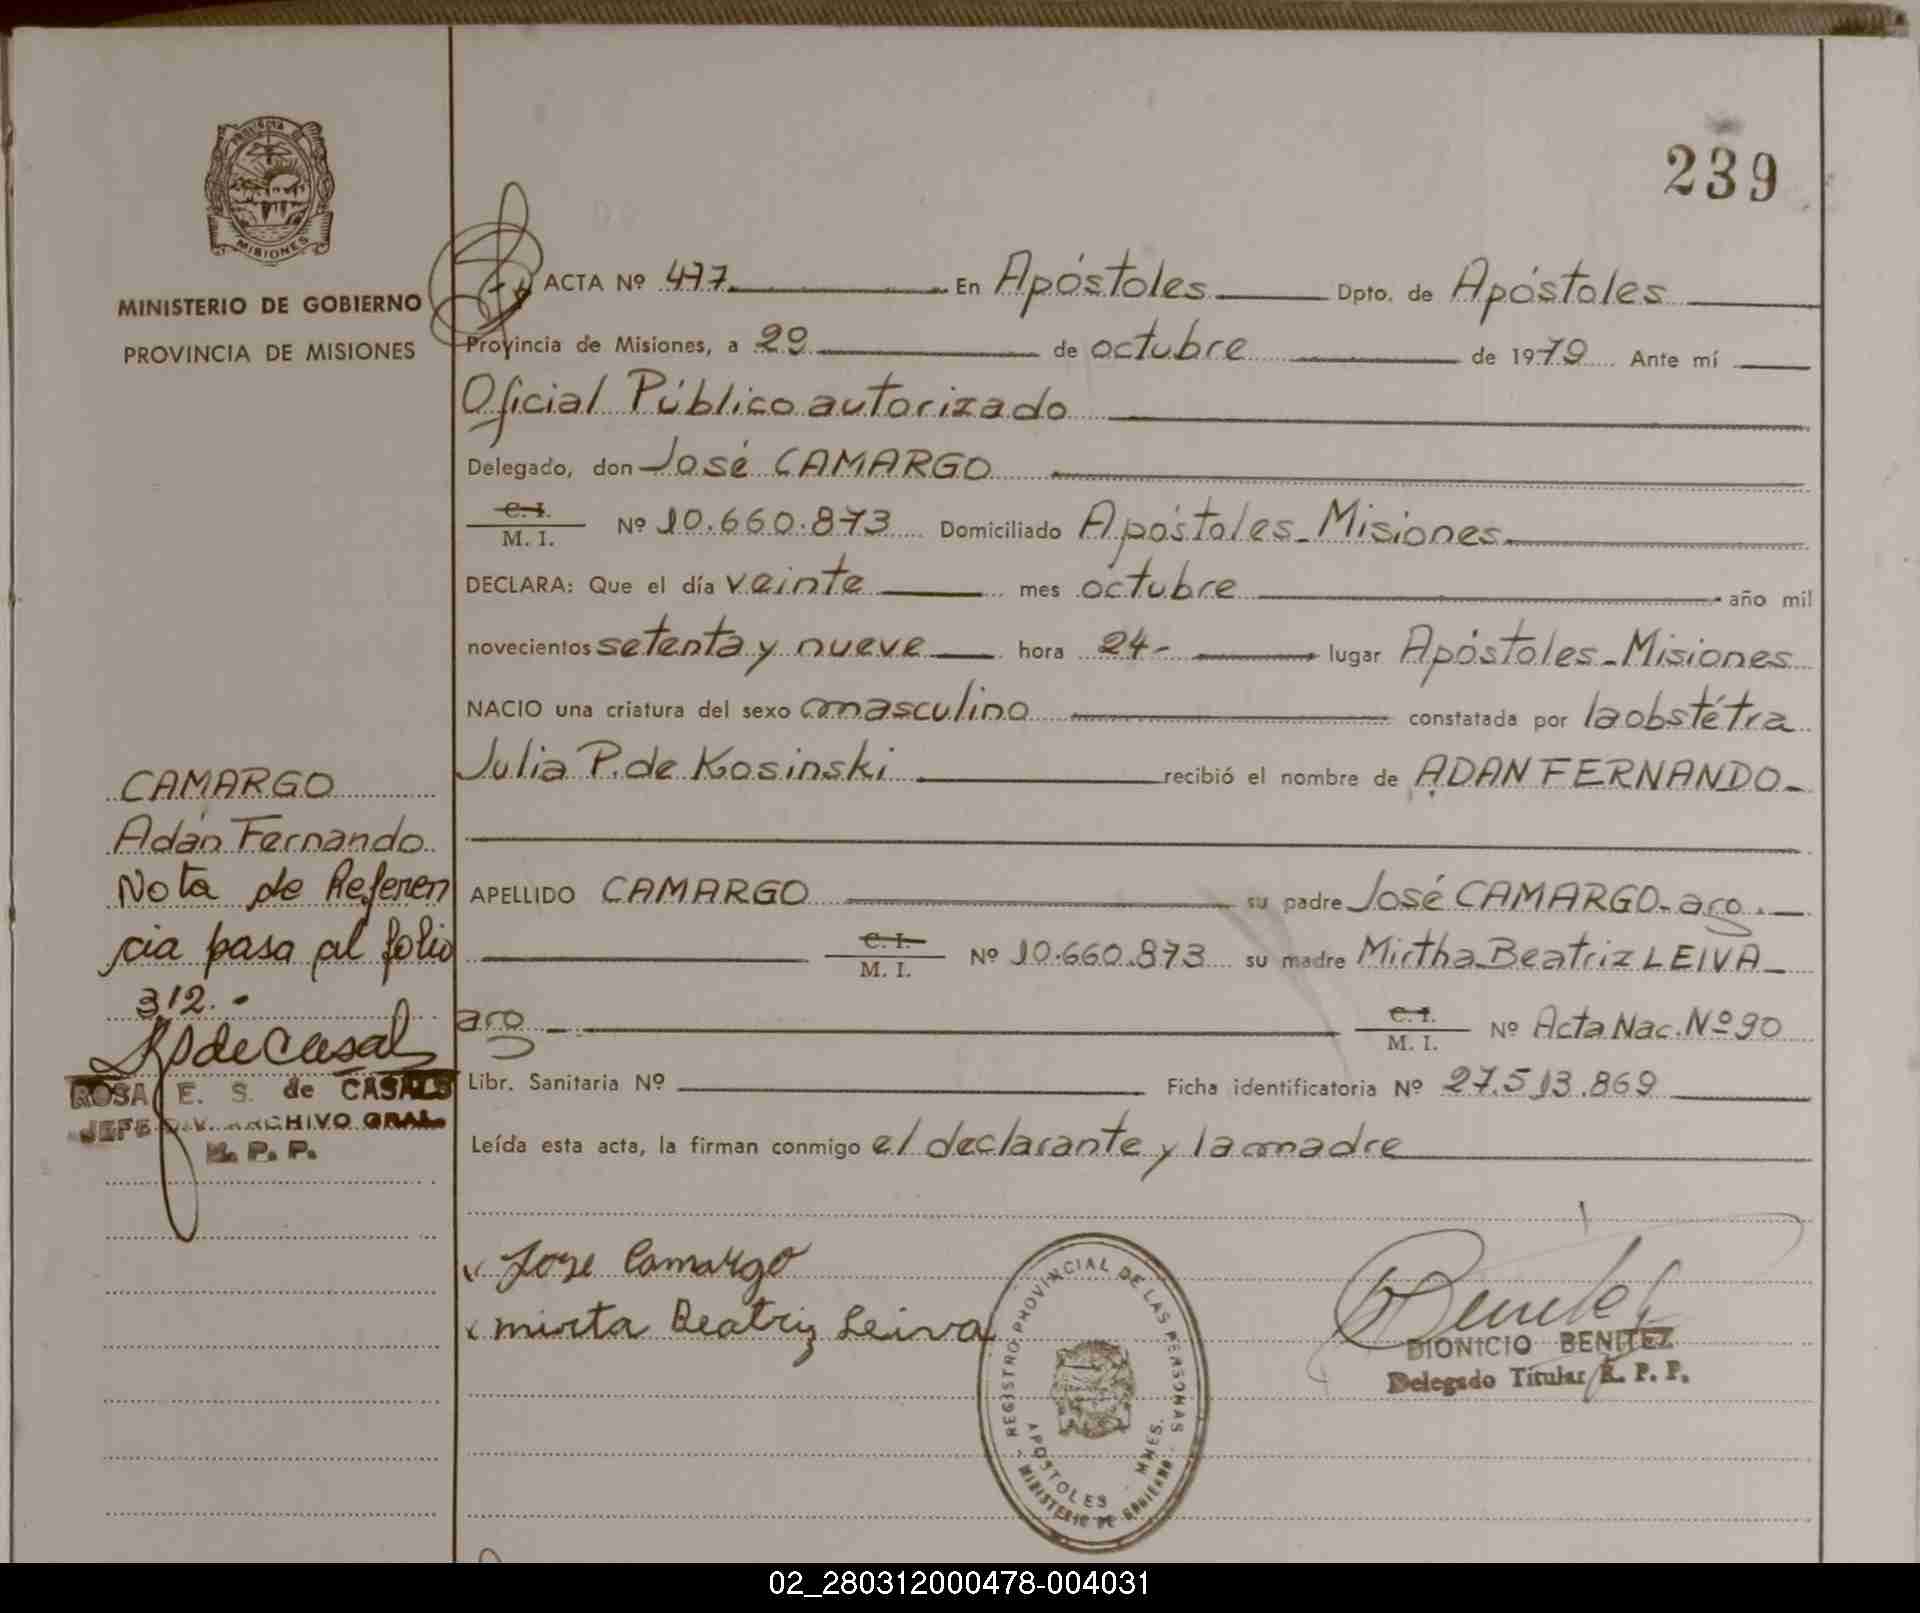 239
PROVINCIA DE
MISIONES
MINISTERIO DE GOBIERNO
PROVINCIA DE MISIONES
ACTA Nº 477 En Apóstoles Dpto. de Apóstoles
Provincia de Misiones, a 29 de octubre de 1979 Ante mí
Oficial Público autorizado
Delegado, don José CAMARGO
C. I.
M. I. Nº 10.660.873 Domiciliado Apóstoles - Misiones
DECLARA: Que el día veinte mes octubre año mil
novecientos setenta y nueve hora 24- lugar Apóstoles - Misiones
NACIO una criatura del sexo masculino constatada por la obstétra
Julia P. de Kosinski recibió el nombre de ADAN FERNANDO -
APELLIDO CAMARGO su padre José CAMARGO - arg.
C. I.
M. I. Nº 10.660.873 su madre Mirtha Beatriz LEIVA -
arg C. I.
M. I. Nº Acta Nac. Nº 90
Libr. Sanitaria Nº Ficha identificatoria Nº 27.513.869
Leída esta acta, la firman conmigo el declarante y la madre
CAMARGO
Adán Fernando
Nota de Referen
cia pasa al folio
312.-
RS de Casals
ROSA E. S. de CASALS
JEFE DIV. ARCHIVO GRAL.
R. P. P.
Jose Camargo
mirta Beatriz Leiva
REGISTRO PROVINCIAL DE LAS PERSONAS
APOSTOLES MNES.
MINISTERIO DE GOBIERNO
Benitez
DIONICIO BENITEZ
Delegado Titular R. P. P.
02_280312000478-004031